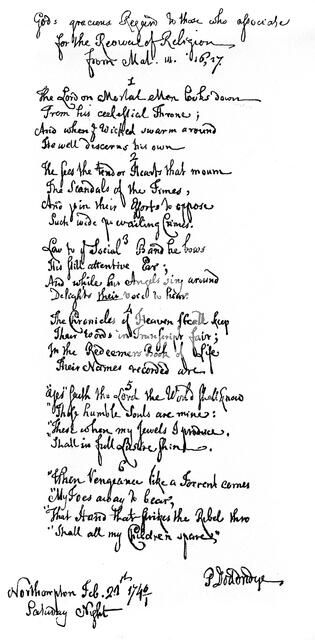 God's gracious Regard to those who associate
for the Revival of Religion
from Mal. iii. 16, 17.
1
The Lord on Mortal Men looks down
From his celestial Throne;
And when ye Wicked swarm around
He well discerns his own
2
He sees the tender Hearts that mourn
The Scandals of the Times,
And join their Efforts to oppose
Such wide prevailing Crimes.
3
Low to ye Social Band he bows
His still attentive Ear;
And while his Angels sing around
Delights their voice to hear.
4
The Chronicles of Heaven shall keep
Their words in Transcript fair;
In the Redeemers Book of Life
Their Names recorded are
5
"Yes" saith the Lord the World shall know
"These humble Souls are mine:
"These when my Jewels I produce,
"Shall in full Lustre shine.
6
"When Vengeance like a Torrent comes
"My Foes away to bear,
"That Hand that strikes the Rebel thro
"Shall all my Children spare,"
P Doddridge
Northampton Feb. 21st 1740/1
Saturday Night